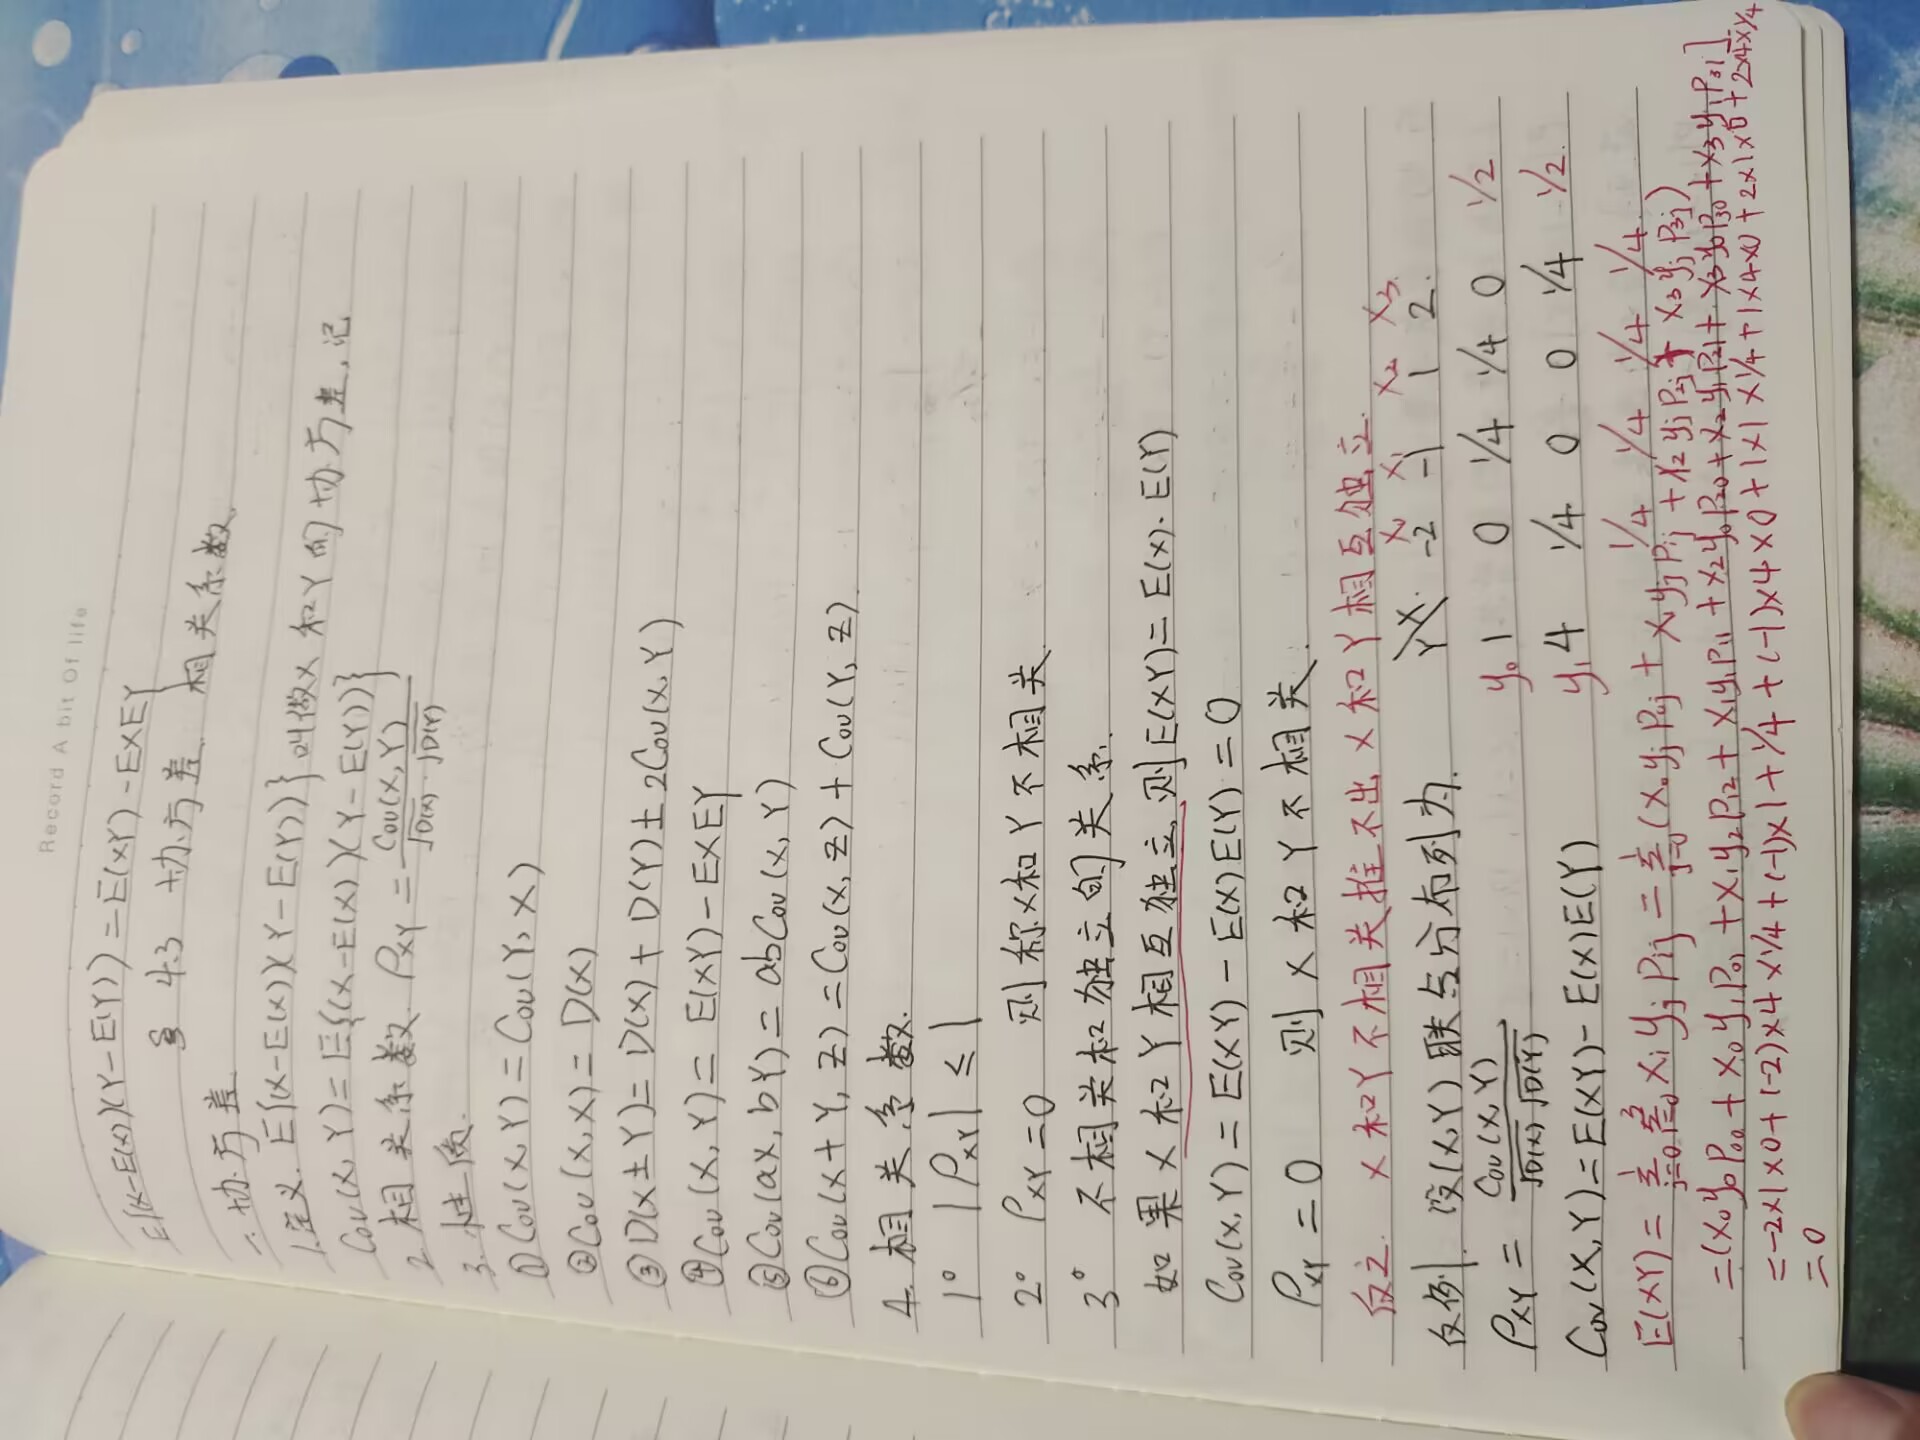 Record A bit Of life
E{(X-E(X))(Y-E(Y))}=E(XY)-EXEY
§ 4.3 协方差 相关系数
一.协方差
1.定义. E{(X-E(X))(Y-E(Y))}叫做X和Y的协方差,记
Cov(X,Y)=E{(X-E(X))(Y-E(Y))}
2 相关系数 ρXY = Cov(X,Y) / √D(X)·√D(Y)
3.性质.
①Cov(X,Y)=Cov(Y,X)
②Cov(X,X)=D(X)
③D(X±Y)=D(X)+D(Y)±2Cov(X,Y)
④Cov(X,Y)= E(XY)-EXEY
⑤Cov(aX,bY)=abCov(X,Y)
⑥Cov(X+Y,Z)=Cov(X,Z)+Cov(Y,Z)
4.相关系数.
1° |ρXY| ≤ 1
2° ρXY=0 则称X和Y不相关
3° 不相关和独立的关系.
如果X和Y相互独立,则E(XY)=E(X)·E(Y)
Cov(X,Y)=E(XY)-E(X)E(Y)=0
ρXY=0 则X和Y不相关.
反之. X和Y不相关推不出X和Y相互独立.
x0 x1 x2 x3
反例. 设(X,Y)联合分布列为. Y\X -2 -1 1 2
ρXY = Cov(X,Y) / √D(X)·√D(Y) y0 1 0 1/4 1/4 0 1/2
Cov(X,Y)=E(XY)-E(X)E(Y) y1 4 1/4 0 0 1/4 1/2
1/4 1/4 1/4 1/4
E(XY)= Σ Σ xi yj Pij = Σ (x0yjP0j + x1yjP1j + x2yjP2j + x3yjP3j)
=(x0y0P00 + x0y1P01 + x1y2P12 + x1y1P11 + x2y0P20 + x2y1P21 + x3y0P30 + x3y1P31]
=-2×1×0+(-2)×4×1/4+(-1)×1×1/4+(-1)×4×0+1×1×1/4+1×4×0+2×1×0+2×4×1/4
=0